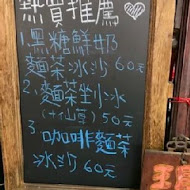 熱賣推薦
1.黑糖鮮奶
麵茶冰沙60元
2.麵茶剉冰
(十仙草)50元
3.咖啡麵茶
冰沙60元